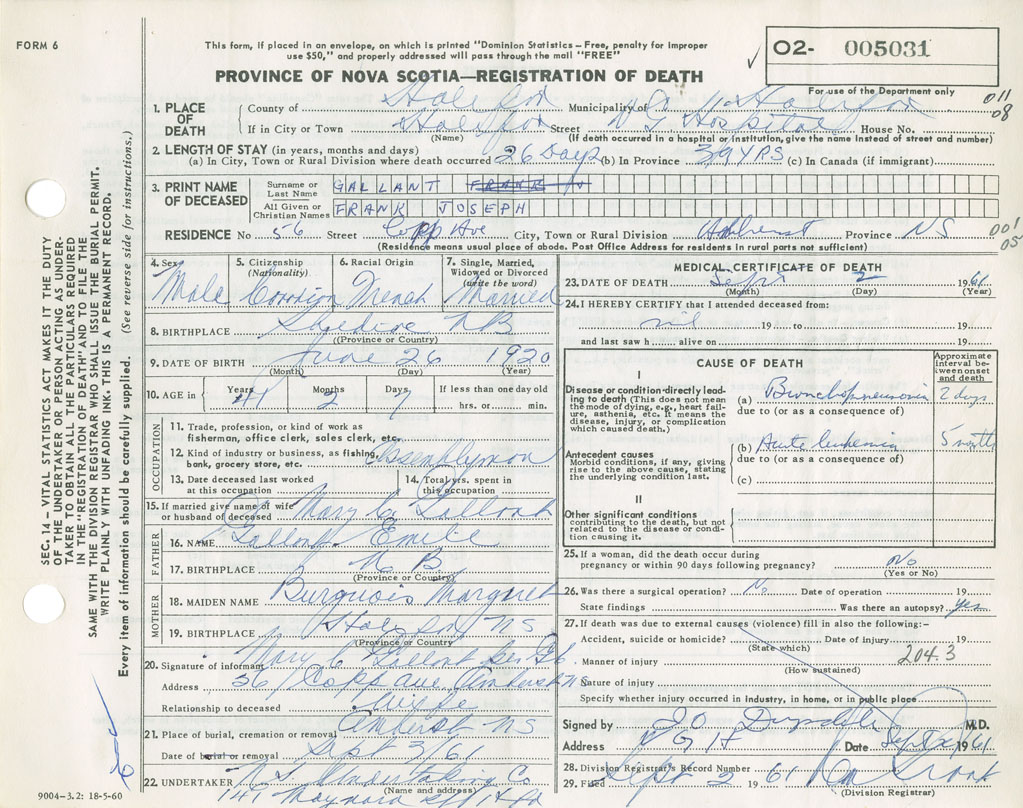 FORM 6
This form, if placed in an envelope, on which is printed "Dominion Statistics – Free, penalty for improper
use $50," and properly addressed will pass through the mail "FREE"
02- 005031
PROVINCE OF NOVA SCOTIA—REGISTRATION OF DEATH
For use of the Department only
011
08
1. PLACE OF DEATH
County of Halifax Municipality of Halifax
If in City or Town Halifax Street V G Hospital House No.
(Name) (If death occurred in a hospital or institution, give the name instead of street and number)
2. LENGTH OF STAY (in years, months and days)
(a) In City, Town or Rural Division where death occurred 26 Days (b) In Province 39 YRS (c) In Canada (if immigrant)
3. PRINT NAME OF DECEASED
Surname or Last Name GALLANT FRANK J
All Given or Christian Names FRANK JOSEPH
RESIDENCE No. 56 Street Copp Ave City, Town or Rural Division Amherst Province NS
001
05
(Residence means usual place of abode. Post Office Address for residents in rural parts not sufficient)
4. Sex Male
5. Citizenship (Nationality) Canadian
6. Racial Origin French
7. Single, Married, Widowed or Divorced (write the word) Married
8. BIRTHPLACE Shediac NB
(Province or Country)
9. DATE OF BIRTH June 26 1920
(Month) (Day) (Year)
10. AGE in Years 41 Months 2 Days 7 If less than one day old
hrs. or min.
OCCUPATION
11. Trade, profession, or kind of work as
fisherman, office clerk, sales clerk, etc.
12. Kind of industry or business, as fishing,
bank, grocery store, etc. Assemblyman
13. Date deceased last worked
at this occupation
14. Total yrs. spent in
this occupation
15. If married give name of wife
or husband of deceased Mary Gallant
FATHER
16. NAME Gallant Emile
17. BIRTHPLACE N B
(Province or Country)
MOTHER
18. MAIDEN NAME Burgnois Margaret
19. BIRTHPLACE Halifax NS
(Province or Country)
20. Signature of informant Mary C Gallant
Address 56 Copp Ave Amherst NS
Relationship to deceased Wife
21. Place of burial, cremation or removal Amherst NS
Date of burial or removal Sept 3/61
22. UNDERTAKER N S Undertaking Co
(Name and address)
141 Maynard St Hfx
MEDICAL CERTIFICATE OF DEATH
23. DATE OF DEATH Sept 2 1961
(Month) (Day) (Year)
24. I HEREBY CERTIFY that I attended deceased from:
nil 19 to 19
and last saw h alive on 19
CAUSE OF DEATH
Approximate interval between onset and death
I
Disease or condition directly leading to death (This does not mean the mode of dying, e.g., heart failure, asthenia, etc. It means the disease, injury, or complication which caused death.)
(a) Bronchopneumonia 2 days
due to (or as a consequence of)
Antecedent causes
Morbid conditions, if any, giving rise to the above cause, stating the underlying condition last.
(b) Acute leukemia 5 months
due to (or as a consequence of)
(c)
II
Other significant conditions
contributing to the death, but not related to the disease or condition causing it.
25. If a woman, did the death occur during
pregnancy or within 90 days following pregnancy? No
(Yes or No)
26. Was there a surgical operation? No Date of operation 19
State findings Was there an autopsy? yes
27. If death was due to external causes (violence) fill in also the following:-
Accident, suicide or homicide? Date of injury 19
(State which)
204.3
Manner of injury
(How sustained)
Nature of injury
Specify whether injury occurred in industry, in home, or in public place
Signed by M.D.
Address V G H Date Sept 2 1961
28. Division Registrar's Record Number
29. Filed Sept 2 1961
(Division Registrar)
SEC. 14 – VITAL STATISTICS ACT MAKES IT THE DUTY
OF THE UNDERTAKER OR PERSON ACTING AS UNDER-
TAKER TO OBTAIN ALL THE PARTICULARS REQUIRED
IN THE "REGISTRATION OF DEATH" AND TO FILE THE
SAME WITH THE DIVISION REGISTRAR WHO SHALL ISSUE THE BURIAL PERMIT.
WRITE PLAINLY WITH UNFADING INK. THIS IS A PERMANENT RECORD.
Every item of information should be carefully supplied. (See reverse side for instructions.)
9004-3.2: 18-5-60